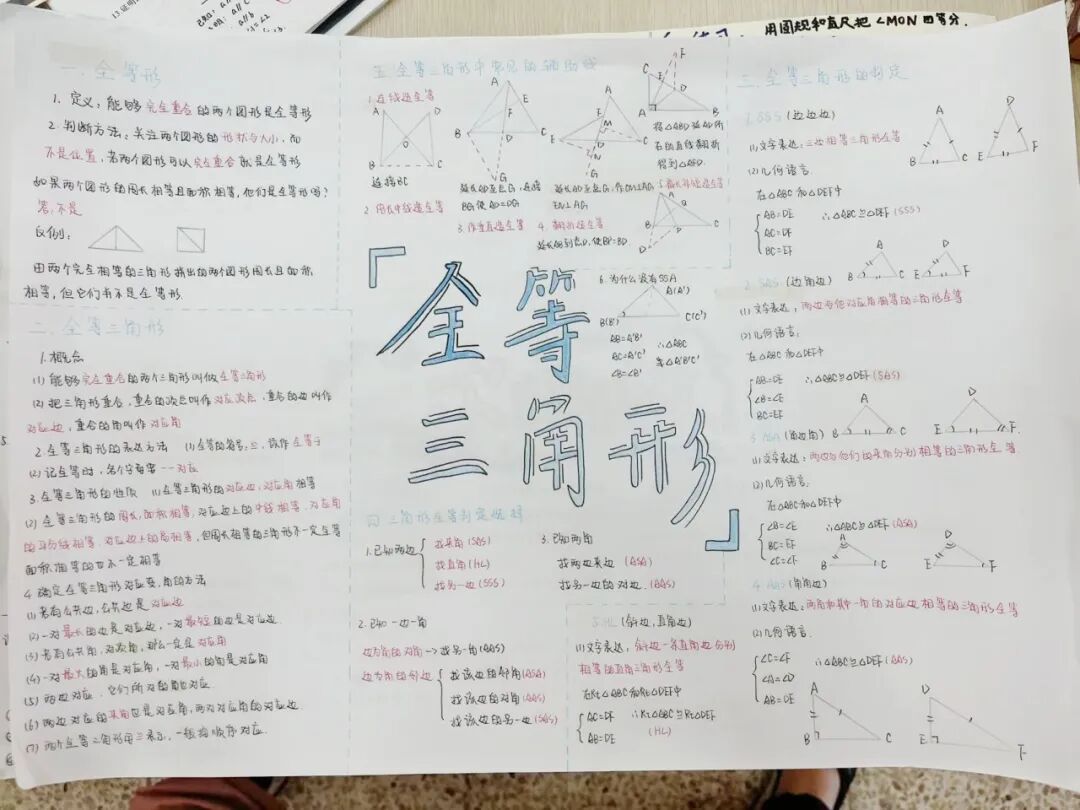 一.全等形
1. 定义：能够完全重合的两个图形是全等形
2. 判断方法：关注两个图形的形状与大小，而
不是位置，若两个图形可以完全重合就是全等形
如果两个图形的周长相等且面积相等，他们是全等形吗？
答：不是
反例：
由两个完全相等的三角形拼出的两个图形周长且面积
相等，但它们并不是全等形.
二.全等三角形
1.概念
(1) 能够完全重合的两个三角形叫做全等三角形
(2) 把三角形重合，重合的顶点叫作对应顶点，重合的边叫作
对应边，重合的角叫作对应角
2.全等三角形的表达方法 (1)全等的符号，≌，读作全等于
(2) 记全等时，各个字母要一一对应
3.全等三角形的性质 (1)全等三角形的对应边，对应角相等
(2) 全等三角形的周长，面积相等，对应边上的中线相等，对应角
的平分线相等，对应边上的高相等，但周长相等的三角形不一定全等
面积相等的也不一定相等
4.确定全等三角形对应边，角的方法
(1) 若有公共边，公共边是对应边
(2) 一对最长的边是对应边，一对最短的边是对应边.
(3) 若有公共角，对顶角，那么一定是对应角
(4) 一对最大的角是对应角，一对最小的角是对应角
(5) 两边对应，它们所对的角也对应.
(6) 两边对应的夹角也是对应角，两对对应角的对应边
(7) 两个全等三角形用≌表示，一般按顺序对应.
五.全等三角形中常见的辅助线
1.连线造全等
A D
O
B C
连接BC
2.倍长中线造全等
A
E
F
B D C
G
延长AD至点G，连接
BG使AD=DG
3.作垂直造全等
A
F
M
E D
N
G
延长AD至点G，作CM⊥AG
EN⊥AG
4.翻折造全等
F
C E
D
A B
将△ABD沿AD所
在的直线翻折
得到△AED.
A
B C
D
6.为什么没有SSA
A(A')
B(B') C(C')
AB=A'B' ∴△ABC
AC=A'C' 非△A'B'C'
∠B=∠B'
「全等
三角形」
四.三角形全等判定选择
1.已知两边
找夹角(SAS)
找直角(HL)
找另一边(SSS)
2.已知一边一角
边为角的对角→找另一角(AAS)
边为角的邻边
找该边的邻角(ASA)
找该边的对角(AAS)
找该边的另一边(SAS)
3.已知两角
找两边夹边(ASA)
找另一边的对边(AAS)
三.全等三角形的判定
1.SSS(边边边)
(1)文字表达：三边相等三角形全等
(2)几何语言
在△ABC和△DEF中
AB=DE ∴△ABC≌△DEF(SSS)
AC=DF
BC=EF
2.SAS(边角边)
(1)文字表达：两边与他对应角相等的三角形全等
(2)几何语言：
在△ABC和△DEF中
AB=DE ∴△ABC≌△DEF(SAS)
∠B=∠E
BC=EF
3.ASA(角边角)
(1)文字表达：两边与他们的夹角分别相等的三角形全等.
(2)几何语言：
在△ABC和△DEF中
∠B=∠E ∴△ABC≌△DEF(ASA)
BC=EF
∠C=∠F
4.AAS(角角边)
(1)文字表达：两角和其中一角的对应边相等的三角形全等
(2)几何语言.
∠C=∠F ∴△ABC≌△DEF(AAS)
∠A=∠D
AB=DE
5.HL(斜边，直角边)
(1)文字表达：斜边一条直角边分别
相等的直角三角形全等
在Rt△ABC和Rt△DEF中
AC=DF ∴Rt△ABC≌Rt△DEF
AB=DE (HL)
用圆规和直尺把∠MON四等分.